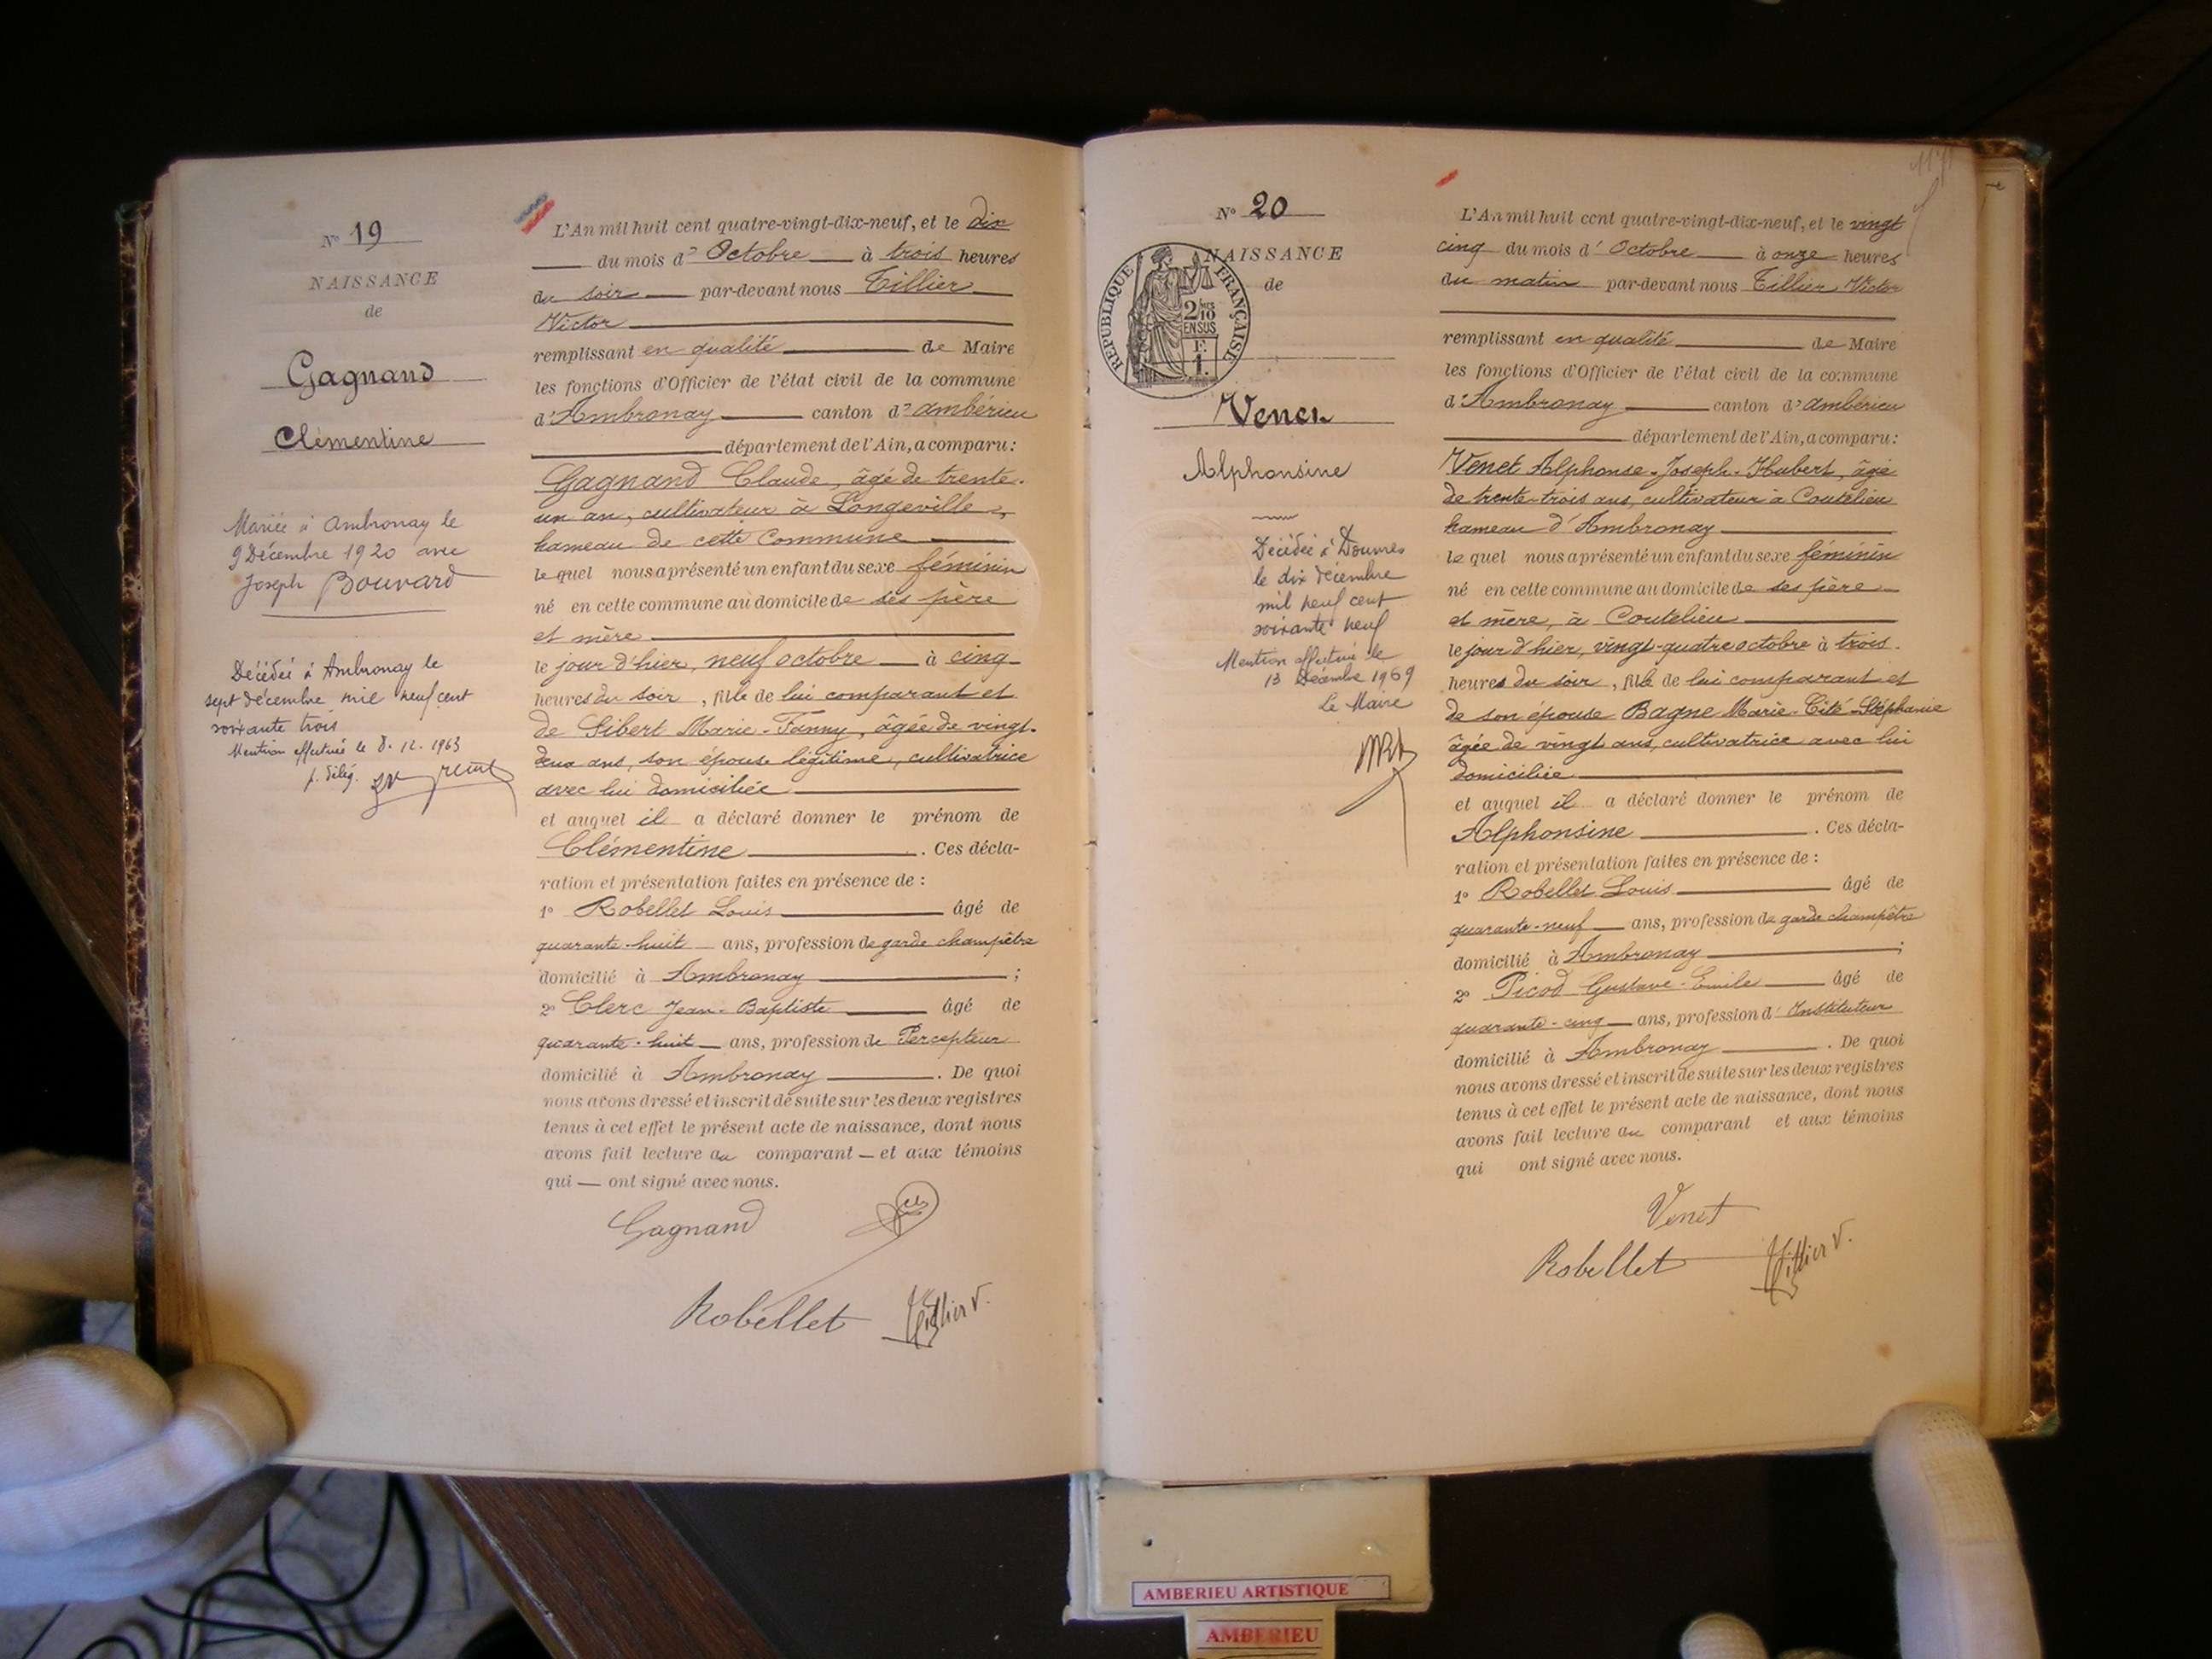 N° 19
NAISSANCE
de
Gagnand
Clémentine
Mariée à Ambronay le
9 Décembre 1920 avec
Joseph Bouvard
Décédée à Ambronay le
sept décembre mil neuf cent
soixante trois
Mention effectuée le 8.12.1963
p. délég.
L'An mil huit cent quatre-vingt-dix-neuf, et le dix
du mois d'Octobre à trois heures
du soir par-devant nous Tillier
Victor
remplissant en qualité de Maire
les fonctions d'Officier de l'état civil de la commune
d'Ambronay canton d'ambérieu
département de l'Ain, a comparu :
Gagnand Claude, âgé de trente-
un an, cultivateur à Longeville,
hameau de cette Commune
le quel nous a présenté un enfant du sexe féminin
né en cette commune au domicile de ses père
et mère
le jour d'hier, neuf octobre à cinq
heures du soir, fille de lui comparant et
de Sibert Marie-Fanny, âgée de vingt-
deux ans, son épouse légitime, cultivatrice
avec lui domiciliée
et auquel il a déclaré donner le prénom de
Clémentine. Ces décla-
ration et présentation faites en présence de :
1° Robellet Louis âgé de
quarante-huit ans, profession de garde champêtre
domicilié à Ambronay ;
2° Clerc Jean-Baptiste âgé de
quarante-huit ans, profession de Percepteur
domicilié à Ambronay. De quoi
nous avons dressé et inscrit de suite sur les deux registres
tenus à cet effet le présent acte de naissance, dont nous
avons fait lecture au comparant et aux témoins
qui ont signé avec nous.
Gagnand
Robellet Tillier V.
N° 20
NAISSANCE
de
RÉPUBLIQUE FRANÇAISE
2 /10
EN SUS
F.
1.
Venet
Alphonsine
Décédée à Douvres
le dix décembre
mil neuf cent
soixante neuf
Mention effectuée le
13 Décembre 1969
Le Maire
L'An mil huit cent quatre-vingt-dix-neuf, et le vingt
cinq du mois d'Octobre à onze heures
du matin par-devant nous Tillier Victor
remplissant en qualité de Maire
les fonctions d'Officier de l'état civil de la commune
d'Ambronay canton d'ambérieu
département de l'Ain, a comparu :
Venet Alphonse-Joseph-Hubert, âgé
de trente-trois ans, cultivateur à Coutelieu
hameau d'Ambronay
le quel nous a présenté un enfant du sexe féminin
né en cette commune au domicile de ses père
et mère, à Coutelieu
le jour d'hier, vingt-quatre octobre à trois
heures du soir, fille de lui comparant et
de son épouse Bagne Marie-Cité-Stéphanie
âgée de vingt ans, cultivatrice avec lui
domiciliée
et auquel il a déclaré donner le prénom de
Alphonsine. Ces décla-
ration et présentation faites en présence de :
1° Robellet Louis âgé de
quarante-neuf ans, profession de garde champêtre
domicilié à Ambronay ;
2° Picod Gustave-Emile âgé de
quarante-cinq ans, profession d'Instituteur
domicilié à Ambronay. De quoi
nous avons dressé et inscrit de suite sur les deux registres
tenus à cet effet le présent acte de naissance, dont nous
avons fait lecture au comparant et aux témoins
qui ont signé avec nous.
Venet
Robellet Tillier V.
AMBERIEU ARTISTIQUE
AMBERIEU